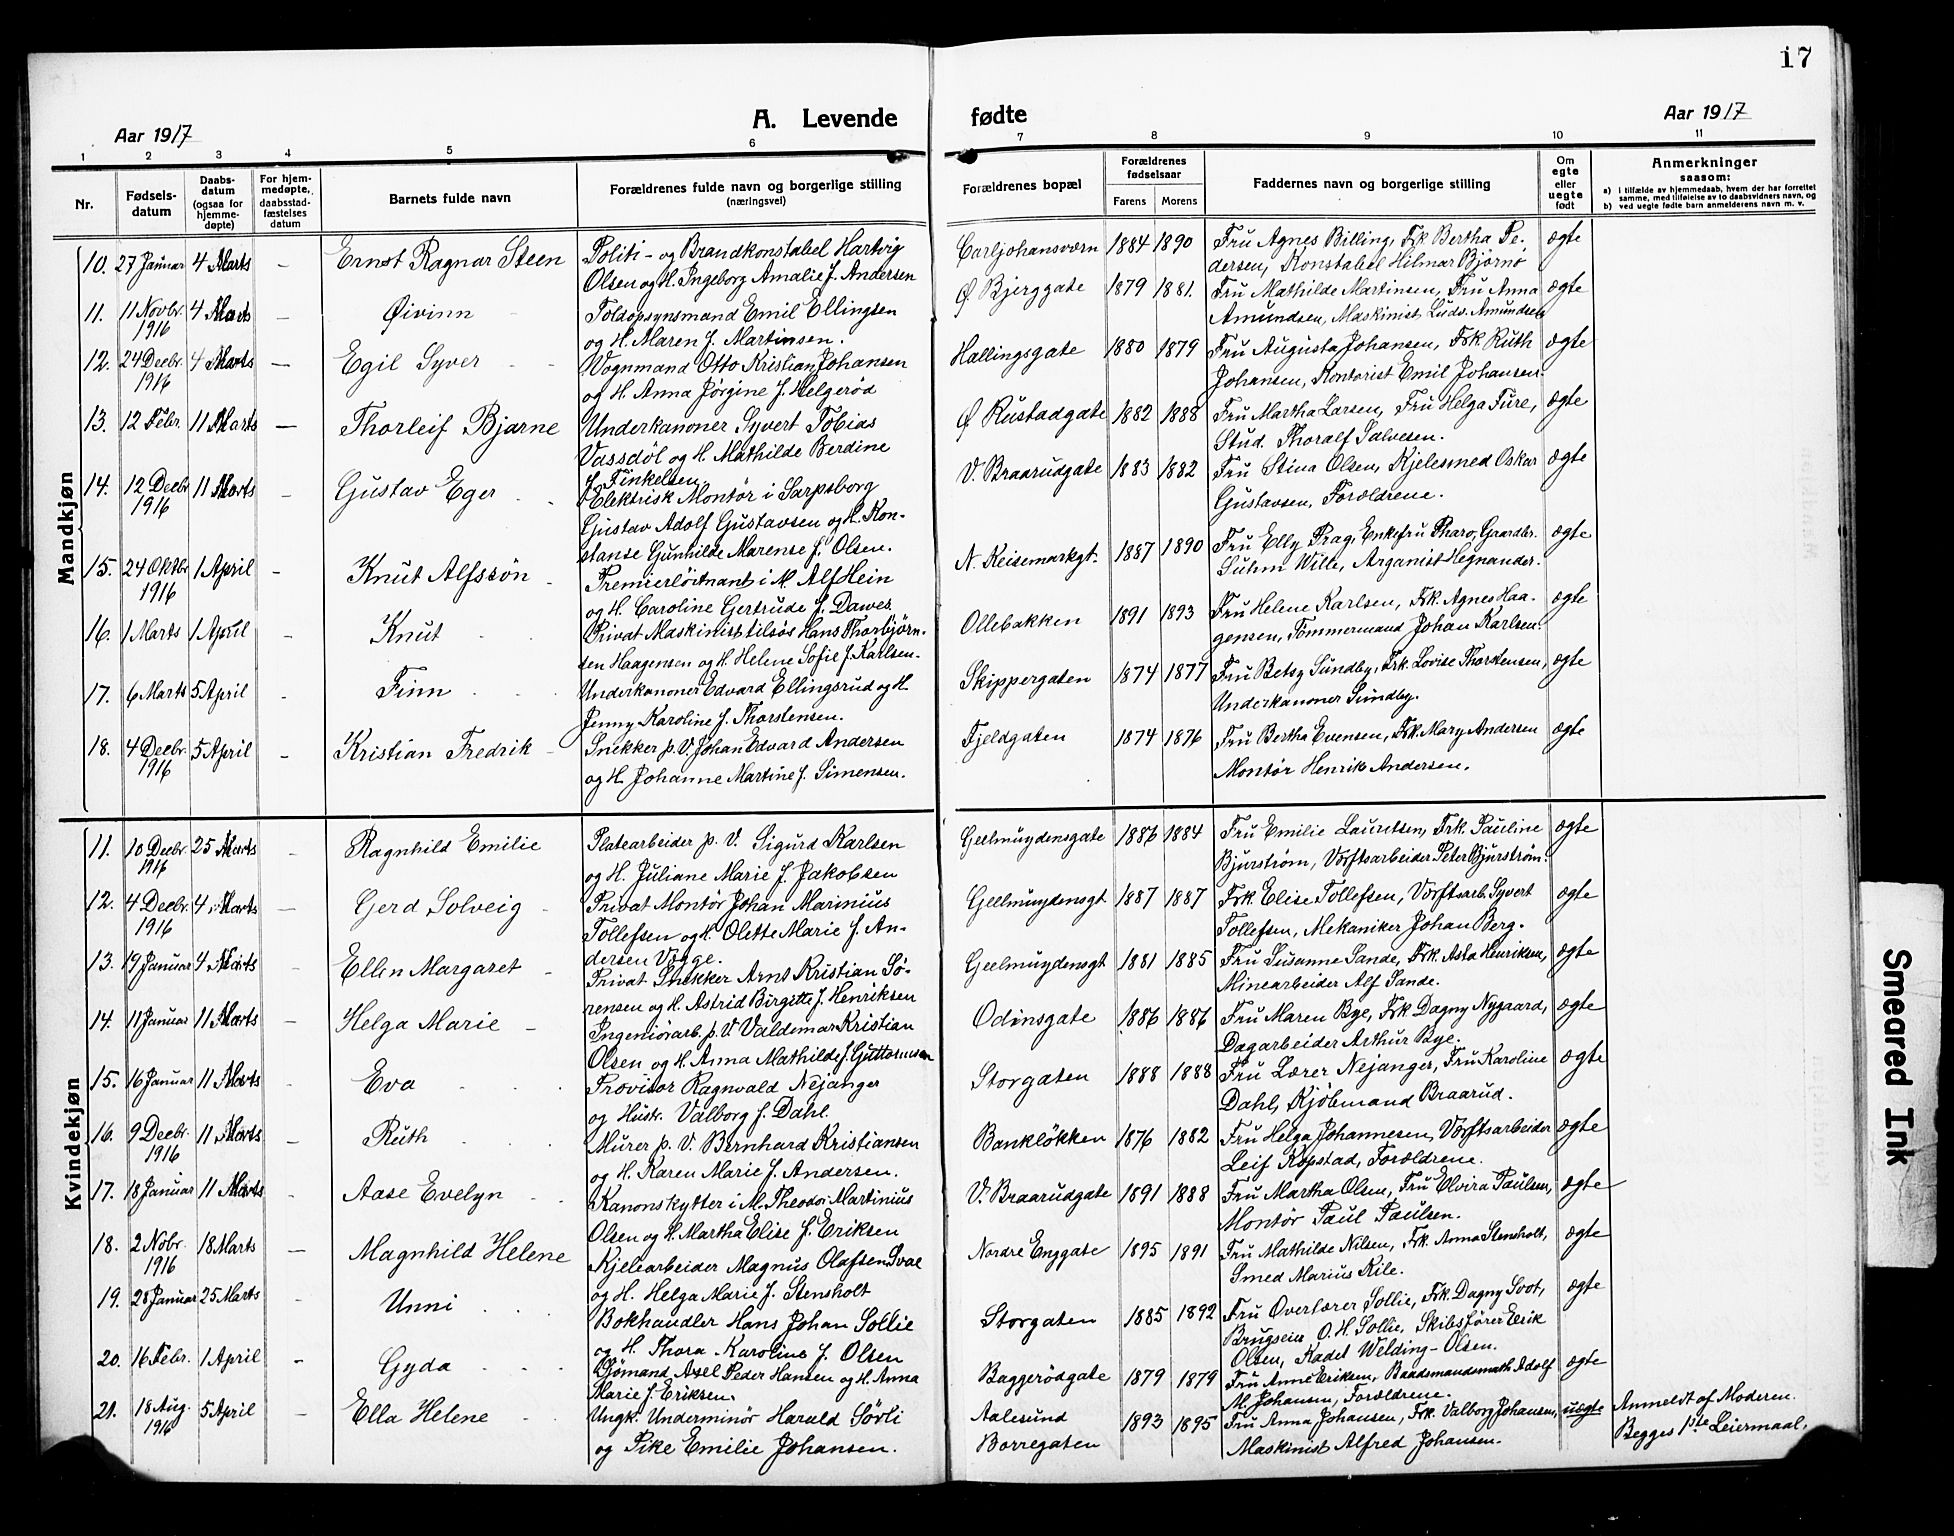 17
A. Levende fødte
Aar 1917
Aar 1917
1 2 3 4 5 6 7 8 9 10 11
Nr.
Fødsels-
datum
Daabs-
datum
(ogsaa for
hjemme-
døpte)
For hjem-
medøpte,
daabsstad-
fæstelses
datum
Barnets fulde navn
Forældrenes fulde navn og borgerlige stilling
(næringsvei)
Forældrenes bopæl
Forældrenes
fødselsaar
Farens Morens
Faddernes navn og borgerlige stilling
Om
egte
eller
uegte
født
Anmerkninger
saasom:
a) i tilfælde av hjemmedaab, hvem der har forrettet
samme, med tilføielse av to daabsvidners navn, og
b) ved uegte fødte barn anmelderens navn m. v.
Mandkjøn
10. 27 Januar 4 Marts — Ernst Ragnar Steen
Politi- og Brandkonstabel Hartvig
Olsen og H. Ingeborg Amalie f. Andersen
Carljohansværn 1884 1890
Fru Agnes Billing, Frk Bertha Pe-
dersen, Konstabel Hilmar Bjørnø
ægte
11. 11 Novbr. 1916 4 Marts — Øivinn
Toldopsynsmand Emil Ellingsen
og H. Maren f. Martinsen.
Ø Bjerggate 1879 1881.
Fru Mathilde Martinsen, Fru Anna
Amundsen, Maskinist Ludv. Amundsen
ægte
12. 24 Decbr. 1916 4 Marts — Egil Syver
Vognmand Otto Kristian Johansen
og H. Anna Jørgine f. Helgerød
Hallingsgate 1880 1879
Fru Augusta Johansen, Frk Ruth
Johansen, Kontorist Emil Johansen.
ægte
13. 12 Febr. 11 Marts — Thorleif Bjarne
Underkanoner Syvert Tobias
Vassdøl og H. Mathilde Berdine
f. Finkelsen
Ø Rustadgate 1882 1888
Fru Martha Larsen, Fru Helga Fure,
Stud. Thoralf Salvesen.
ægte
14. 12 Decbr 1916 11 Marts — Gustav Eger
Elektrisk Montör i Sarpsborg
Gustav Adolf Gustavsen og H. Kon-
stanse Gunhilde Marense f. Olsen.
V. Braarudgate 1883 1882
Fru Stina Olsen, Kjelesmed Oskar
Gustavsen, Forældrene.
ægte
15. 24 Oktbr 1916 1 April - Knut Alfssön
Premierløitnant i M. Alf Hein
og H. Caroline Gertrude f. Dawes
N. Keisemarkgt. 1887 1890
Fru Elly Prag, Enkefru Pharo, Gaardbr.
Suhm Wille, Arganist Hegnander.
ægte
16. 1 Marts 1 April - Knut
Privat Maskinist tilsøs Hans Thorbjörn-
sen Haagensen og H. Helene Sofie f. Karlsen.
Ollebakken 1891 1893
Fru Helene Karlsen, Frk. Agnes Haa-
gensen, Tömmermand Johan Karlsen.
ægte
17. 6 Marts 5 April - Finn
Underkanoner Edvard Ellingsrud og H.
Jenny Karoline f. Thorstensen.
Skippergaten 1874 1877
Fru Betsy Sundby, Frk. Lovise Thorstensen,
Underkanoner Sundby.
ægte
18. 4 Decbr. 1916 5 April - Kristian Fredrik
Snekker p. V. Johan Edvard Andersen
og H. Johanne Martine f. Simensen.
Fjeldgaten 1874 1876
Fru Bertha Evensen, Frk. Mary Andersen
Montör Henrik Andersen.
ægte
Kvindekjøn
11. 10 Decbr. 1916 25 Marts - Ragnhild Emilie
Platearbeider p. V. Sigurd Karlsen
og H. Juliane Marie f. Jakobsen
Geelmuydensgate 1886 1884
Fru Emilie Lauritsen, Frk. Pauline
Bjurström, Værftsarbeider Peter Bjurström.
ægte
12. 4 Decbr. 1916 4 Marts — Gerd Solveig
Privat Montör Johan Marinius
Tollefsen og H. Olette Marie f. An-
dersen Vegge.
Geelmuydensgt 1887 1887
Frk. Elise Tollefsen, Værftsarb. Syvert
Tollefsen, Mekaniker Johan Berg.
ægte
13. 19 Januar 4 Marts - Ellen Margaret
Privat Snekker Arnt Kristian Sö-
rensen og H. Astrid Birgitte f. Henriksen
Geelmuydensgt 1881 1885
Fru Susanne Sande, Frk. Asta Henriksen,
Minearbeider Alf Sande.
ægte
14. 11 Januar 11 Marts - Helga Marie
Ingeniörarb. p. V Valdemar Kristian
Olsen og H. Anna Mathilde f. Guttormsen
Odinsgate 1886 1886
Fru Maren Bye, Frk Dagny Nygaard,
Dagarbeider Arthur Bye.
ægte
15. 16 Januar 11 Marts - Eva
Provisor Ragnvald Nejanger
og Hustr. Valborg f. Dahl.
Storgaten 1888 1888
Fru Lærer Nejanger, Fru Karoline
Dahl, Kjöbmand Braarud.
ægte
16. 9 Decbr. 1916 11 Marts - Ruth
Murer p. V. Bernhard Kristiansen
og H. Karen Marie f. Andersen.
Banklökken 1876 1882
Fru Helga Johannesen, Værftsarbeider
Leif Kopstad, Forældrene.
ægte
17. 18 Januar 11 Marts - Aase Evelyn
Kanonskytter i M. Theodor Martinius
Olsen og H. Martha Elise f. Eriksen
V. Braarudgate 1891 1888
Fru Martha Olsen, Fru Elvira Paulsen,
Montör Paul Paulsen.
ægte
18. 2 Nobr. 1916 18 Marts — Magnhild Helene
Kjelearbeider Magnus Olafsen Svae
og H. Helga Marie f. Stensholt
Nordre Enggate 1895 1891
Fru Mathilde Nilsen, Frk. Anna Stensholt,
Smed Marius Kile.
ægte
19. 28 Januar 25 Marts - Unni
Bokhandler Hans Johan Sollie
og H. Thora Karoline f. Olsen
Storgaten 1885 1892
Fru Overlærer Sollie, Frk. Dagny Soot,
Brugseier O. H. Sollie, Skibsförer Eerik
Olsen, Kadet Welding-Olsen.
ægte
20. 16 Febr. 1 April - Gyda
Sjömand Axel Peder Hansen og H. Anna
Marie f. Eriksen.
Baggerödgate 1879 1879
Fru Anne Eriksen, Baadsmandsmath Adolf
M. Johansen, Forældrene.
ægte
21. 18 Aug. 1916 5 April - Ella Helene
Ungk. Underminör Harald Sörli
og Pike Emilie Johansen.
Aalesund
Borregaten
1893 1895
Fru Anna Johansen, Frk. Valborg Johansen,
Maskinist Alfred Johansen.
uægte
Anmeldt af Moderen.
Begges 1ste Leiermaal.
Smeared Ink